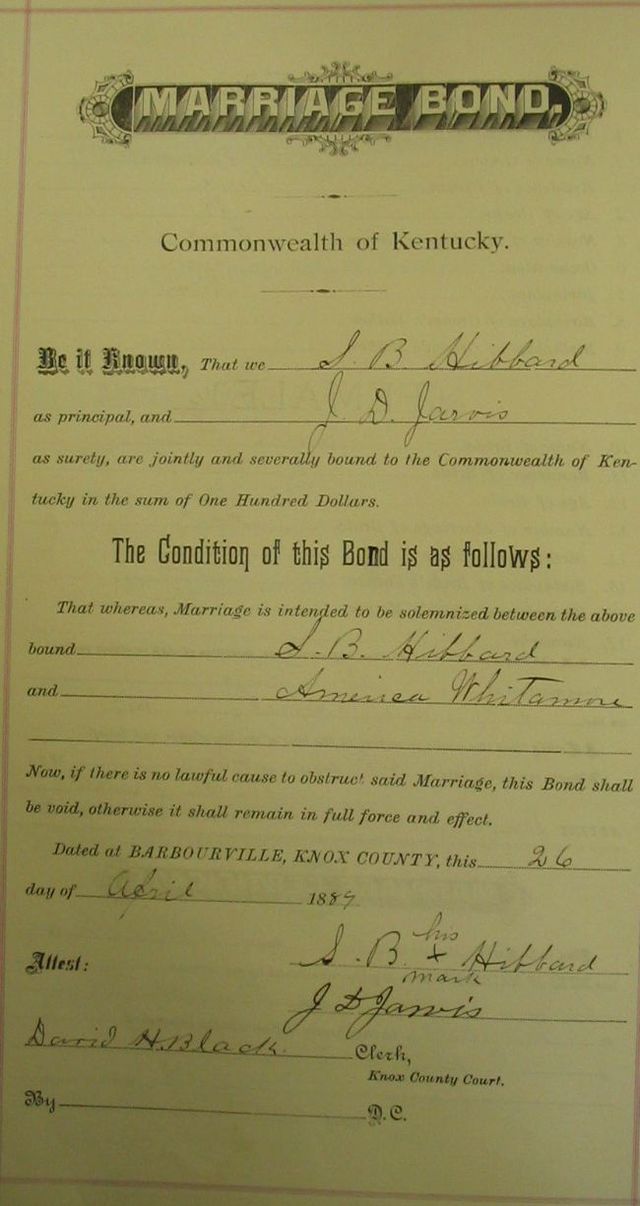 MARRIAGE BOND.
Commonwealth of Kentucky.
Be it Known, That we S. B Hibbard
as principal, and J. D. Jarvis
as surety, are jointly and severally bound to the Commonwealth of Ken-
tucky in the sum of One Hundred Dollars.
The Condition of this Bond is as follows:
That whereas, Marriage is intended to be solemnized between the above
bound S. B. Hibbard
and America Whitamore
Now, if there is no lawful cause to obstruct said Marriage, this Bond shall
be void, otherwise it shall remain in full force and effect.
Dated at BARBOURVILLE, KNOX COUNTY, this 26
day of April 188
his
Attest: S. B. + Hibbard
mark
J D Jarvis
David H. Black Clerk,
Knox County Court.
By D. C.